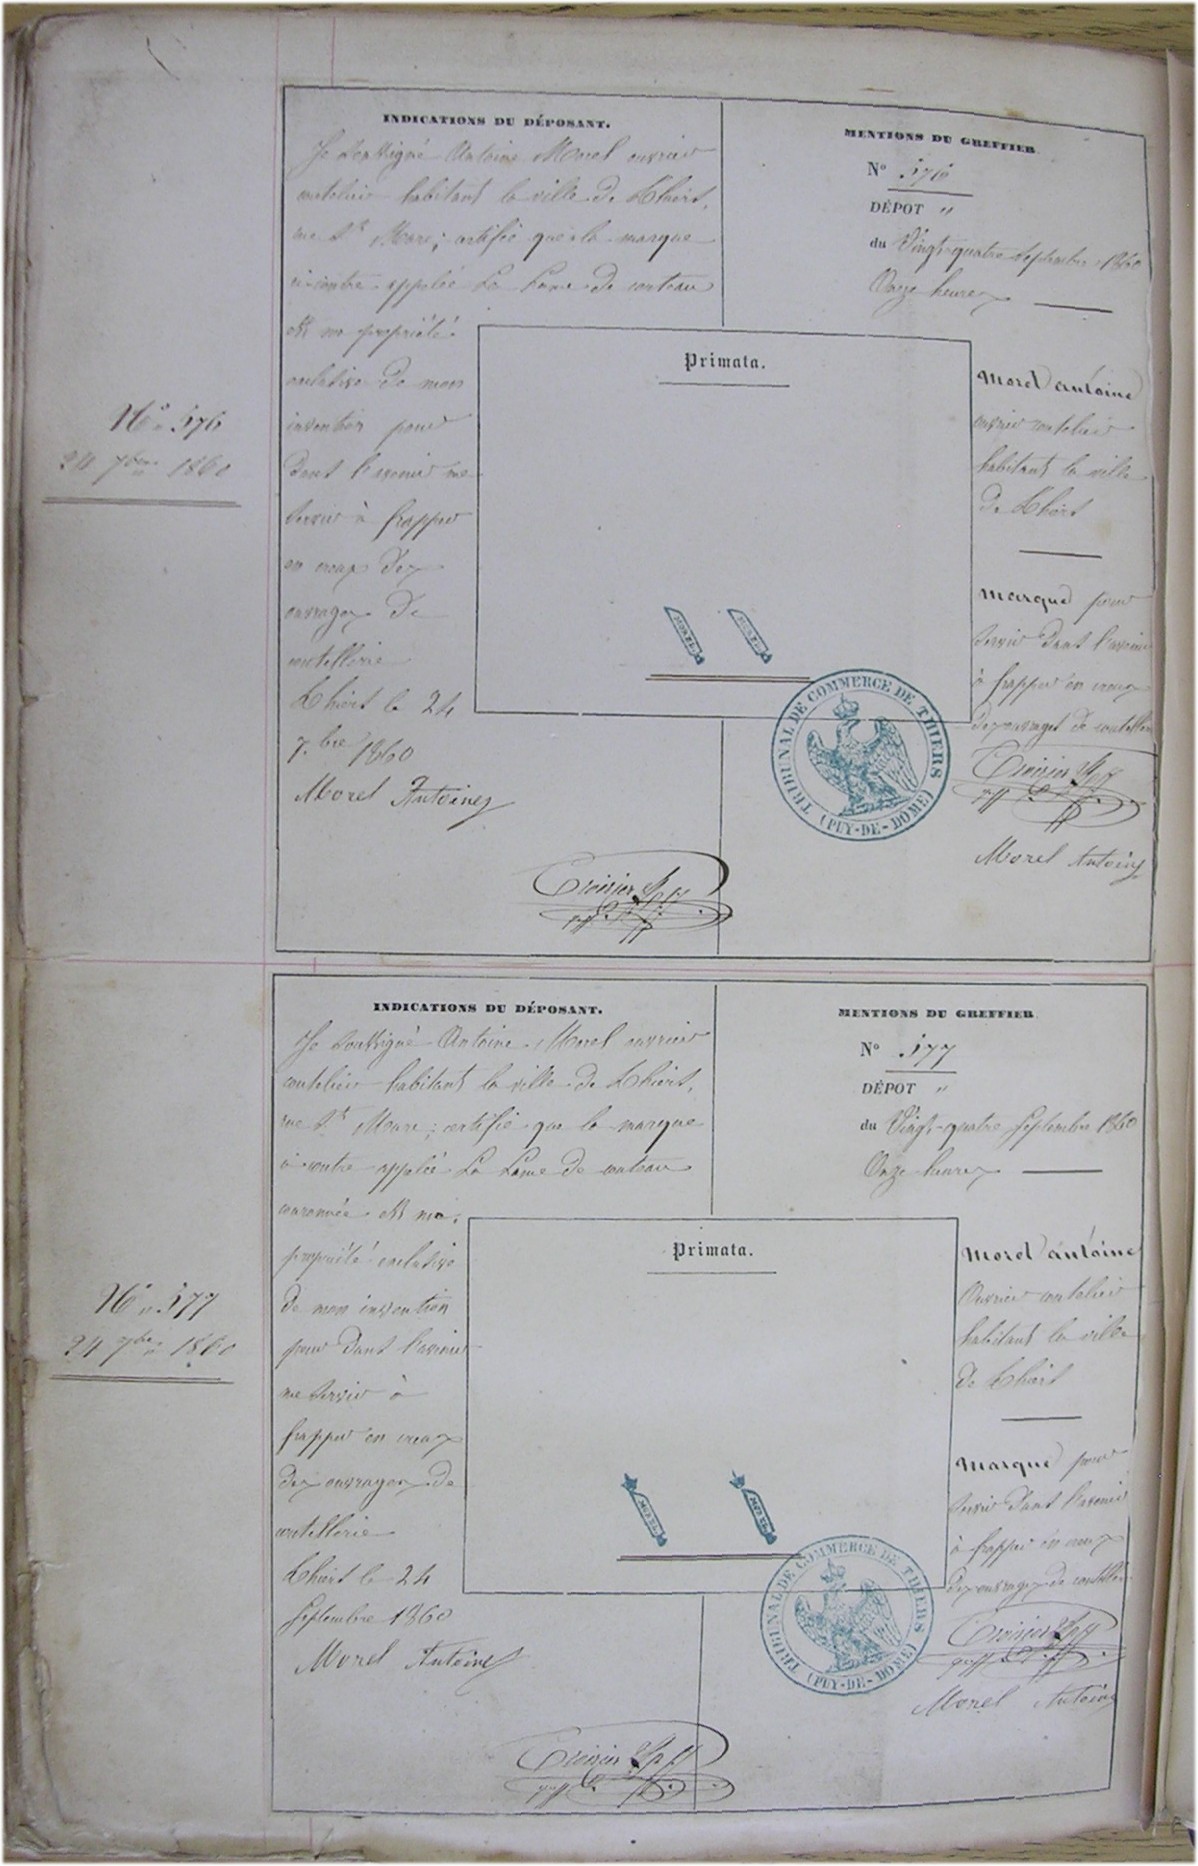 INDICATIONS DU DÉPOSANT.
Je soussigné Antoine Morel ouvrier
coutelier habitant la ville de Thiers,
rue St Mare; certifie que la marque
ci-contre appelée La Lame de couteau
est ma propriété
exclusive de mon
invention pour
dans l'avenir me
servir à frapper
en creux des
ouvrages de
coutellerie
Thiers le 24
7.bre 1860
Morel Antoine
Croizier
MENTIONS DU GREFFIER
No 576
DÉPOT "
du Vingt-quatre Septembre 1860
Onze heures
Primata.
MOREL
MOREL
TRIBUNAL DE COMMERCE DE THIERS
(PUY-DE-DOME)
Morel antoine
ouvrier coutelier
habitant la ville
de Thiers
Marque pour
servir dans l'avenir
à frapper en creux
des ouvrages de coutellerie
Croizier
Morel Antoine
No 576
24 7bre 1860
INDICATIONS DU DÉPOSANT.
Je soussigné Antoine Morel ouvrier
coutelier habitant la ville de Thiers,
rue St Mare; certifie que la marque
ci contre appelée La Lame de couteau
couronnée est ma
propriété exclusive
de mon invention
pour dans l'avenir
me servir à
frapper en creux
des ouvrages de
coutellerie
Thiers le 24
Septembre 1860
Morel Antoine
Croizier
MENTIONS DU GREFFIER
No 577
DÉPOT "
du Vingt-quatre Septembre 1860
Onze heures
Primata.
MOREL
MOREL
TRIBUNAL DE COMMERCE DE THIERS
(PUY-DE-DOME)
Morel antoine
Ouvrier coutelier
habitant la ville
de Thiers
Marque pour
servir dans l'avenir
à frapper en creux
des ouvrages de coutellerie
Croizier
Morel Antoine
No 577
24 7bre 1860